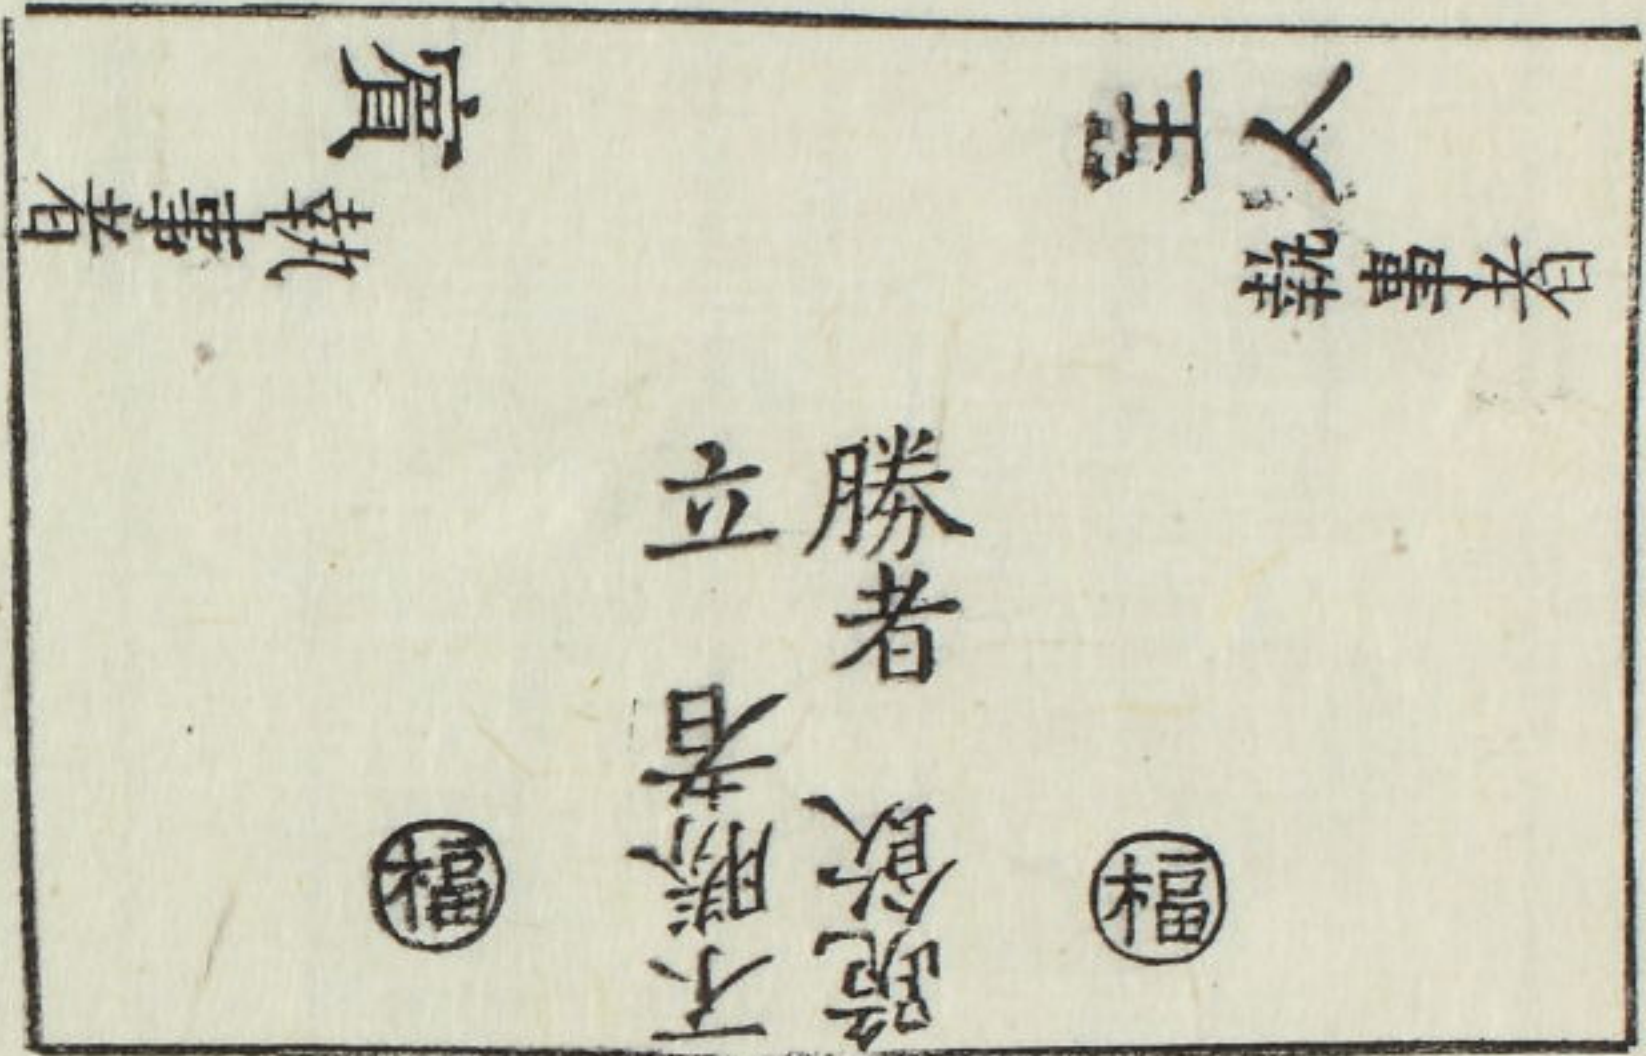 主人
執事者
賔
執事者
勝者
立
不勝者
跪飲
楅
楅